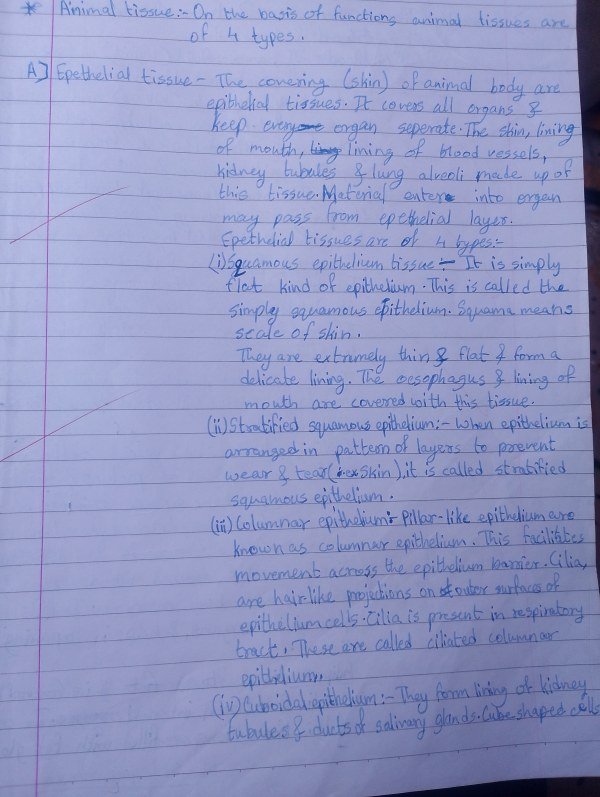 * Animal tissue:- On the basis of functions animal tissues are
of 4 types.
A] Epethelial tissue - The covering (skin) of animal body are
epithelial tissues. It covers all organs &
keep every organ seperate. The skin, lining
of mouth, lining of blood vessels,
kidney tubules & lung alveoli made up of
this tissue. Material enter into organ
may pass from epethelial layer.
Epethelial tissues are of 4 types:-
(i) Squamous epithelium tissue :- It is simply
flat kind of epithelium. This is called the
simply squamous epithelium. Squama means
scale of skin.
They are extremely thin & flat & form a
delicate lining. The oesophagus & lining of
mouth are covered with this tissue.
(ii) Stratified squamous epithelium:- When epithelium is
arranged in pattern of layers to prevent
wear & tear (i.e. skin), it is called stratified
squamous epithelium.
(iii) Columnar epithelium: Pillar-like epithelium are
known as columnar epithelium. This facilitates
movement across the epithelium barrier. Cilia,
are hair like projections on outer surfaces of
epithelium cells. Cilia is present in respiratory
tract. These are called ciliated columnar
epithelium.
(iv) Cuboidal epithelium:- They form lining of kidney
tubules & ducts of salivary glands. Cube shaped cells